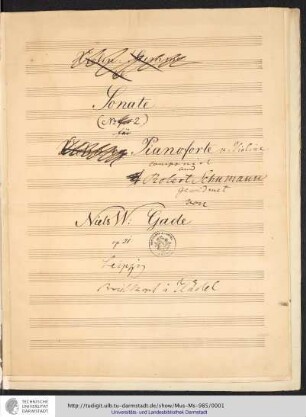 Sonate
(No 2)
für
Pianoforte u. Violine
componirt
und
Robert Schumann
gewidmet
von
Niels W. Gade
op. 21
Leipzig
Breitkopf & Härtel
TECHNISCHE
UNIVERSITÄT
DARMSTADT
http://tudigit.ulb.tu-darmstadt.de/show/Mus-Ms-985/0001
Universitäts- und Landesbibliothek Darmstadt